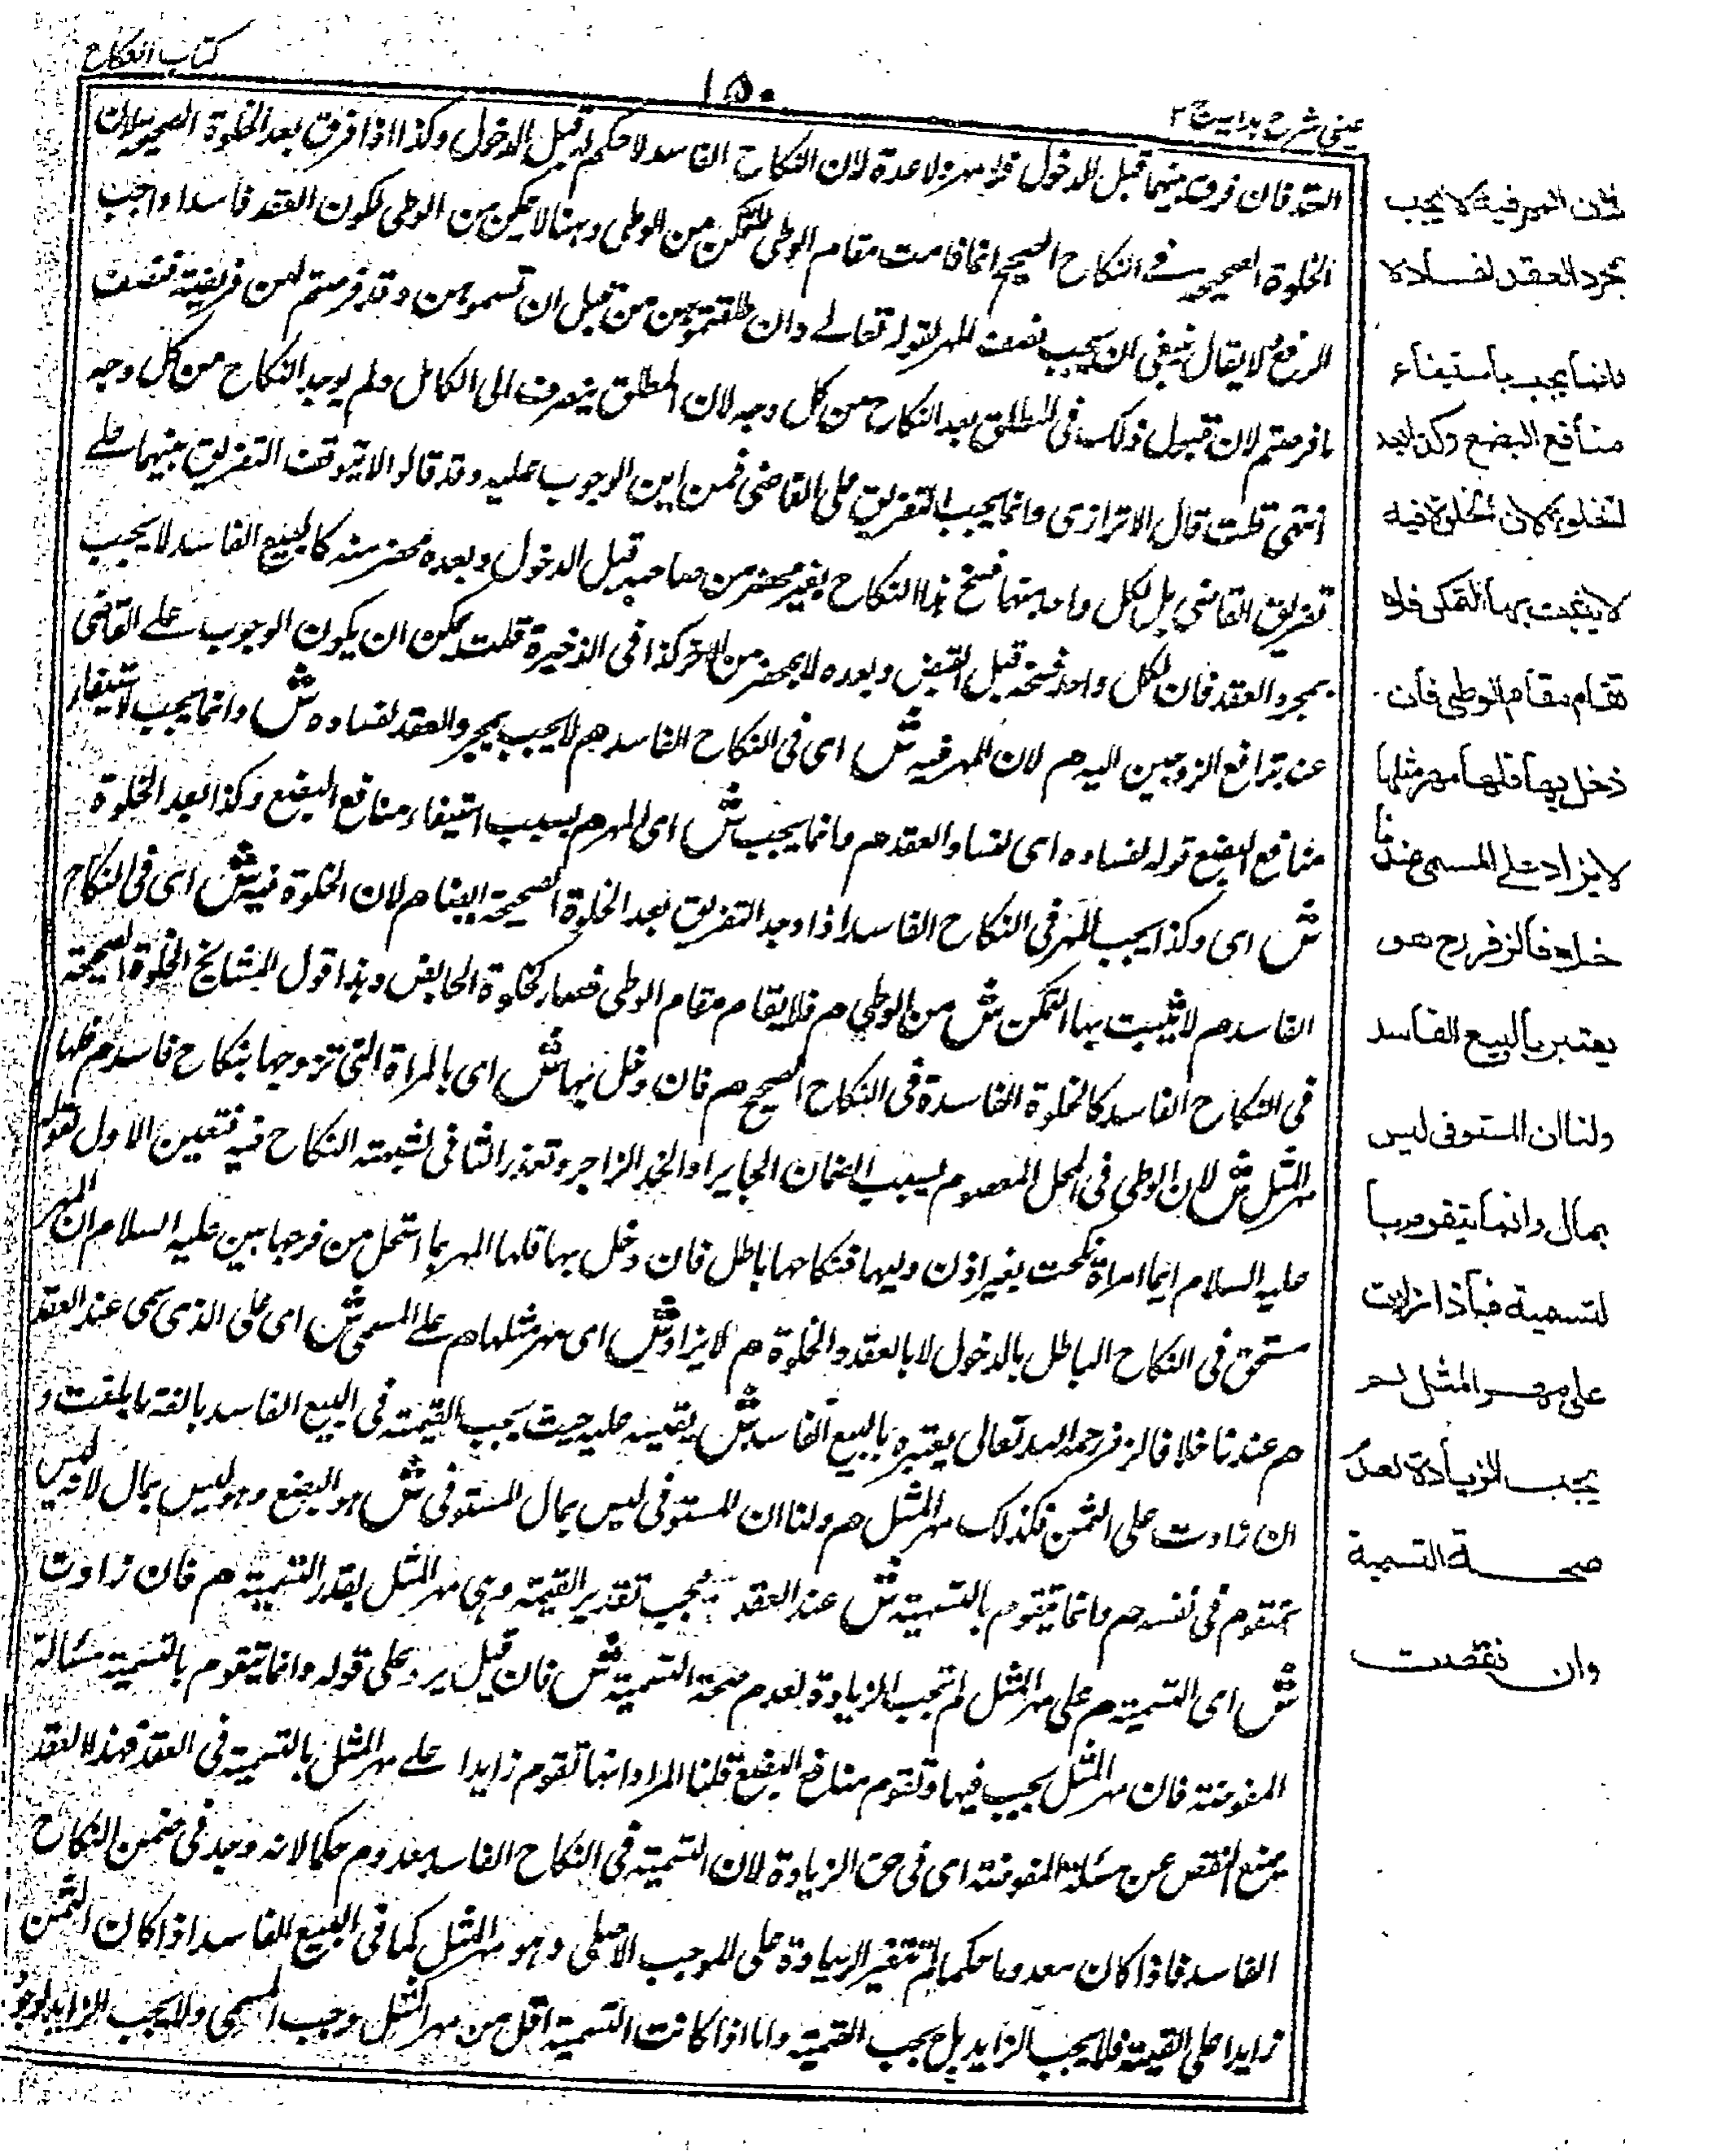 كتاب النكاح
١٥٠
عينى شرح هداية ج ٢
العقد فان فرق بينهما قبل الدخول فلا مهر ولا عدة لان النكاح الفاسد لا حكم له قبل الدخول وكذا اذا فرق بعد الخلوة الصحيحة لان
الخلوة الصحيحة فى النكاح الصحيح انما قامت مقام الوطى للتمكن من الوطى وهنا لا يمكن من الوطى لكون العقد فاسدا واجب
الرفع لا يقال ينبغى ان يجب نصف المهر لقوله تعالے وان طلقتموهن من قبل ان تمسوهن وقد فرضتم لهن فريضة فنصف
ما فرضتم لان قبول ذلك فى المطلق بعد النكاح من كل وجه لان المطلق ينصرف الى الكامل ولم يوجد النكاح من كل وجه
انتهى قلت قال الاترازى وانما يجب التفريق على القاضى فمن اين الوجوب عليه وقد قالوا لا يتوقف التفريق بينهما علے
تفريق القاضى بل لكل واحد منهما فسخ هذا النكاح بغير محضر من صاحبه قبل الدخول وبعده محضر منه كالبيع الفاسد لا يجب
بمجرد العقد فان لكل واحد فسخه قبل القبض وبعده لا بمحضر من الآخر كذا فى الذخيرة قلت يمكن ان يكون الوجوب علے القاضى
عند ترافع الزوجين اليه م لان المهر فيه ش اى فى النكاح الفاسد م لا يجب بمجرد العقد لفساده ش وانما يجب استيفاء
منافع البضع قوله لفساده اى لفساد العقد م وانما يجب ش اى المهر م بسبب استيفاء منافع البضع وكذا بعد الخلوة
ش اى وكذا يجب المهر فى النكاح الفاسد اذا وجد التفريق بعد الخلوة الصحيحة ايضا م لان الخلوة فيه ش اى فى النكاح
الفاسد م لا يثبت بها التمكن ش من الوطى م فلا يقام مقام الوطى فصار كخلوة الحائض وهذا قول المشايخ الخلوة الصحيحة
فى النكاح الفاسد كالخلوة الفاسدة فى النكاح الصحيح م فان دخل بها ش اى بالمراة التى تزوجها بنكاح فاسد م فلها
مهر المثل ش لان الوطى فى المحل المعصوم بسبب الضمان الجابر او الحد الزاجر وتعذر الثانى لشبهة النكاح فيه فتعين الاول لقوله
عليه السلام ايما امراة نكحت بغير اذن وليها فنكاحها باطل فان دخل بها فلها المهر بما استحل من فرجها بين عليه السلام ان المهر
مستحق فى النكاح الباطل بالدخول لا بالعقد والخلوة م لا يزاد ش اى مهر مثلها م علے المسمى ش اى على الذى سمى عند العقد
م عندنا خلافا لزفر رحمه الله تعالى يعتبره بالبيع الفاسد ش يقيسه عليه حيث يجب القيمة فى البيع الفاسد بالغة ما بلغت و
ان زادت على الثمن فكذلك مهر المثل م ولنا ان المستوفى ليس بمال المستوفى ش هو البضع وهو ليس بمال لانه ليس
بمتقوم فى نفسه م وانما يتقوم بالتسمية ش عند العقد فيجب تقدير القيمة وهى مهر المثل بقدر التسمية م فان زادت
ش اى التسمية م على مهر المثل لم تجب الزيادة لعدم صحة التسمية ش فان قيل يرد على قوله وانما يتقوم بالتسمية مسئالة
المفوضة فان مهر المثل يجب فيها وتقوم منافع البضع قلنا المراد انها تقوم زايدا علے مهر المثل بالتسمية فى العقد فهذا العقد
يمنع النقص عن مسئلة المفوضة اى فى حق الزيادة لان التسمية فى النكاح الفاسد معدوم حكما لانه وجد فى ضمن النكاح
الفاسد فاذا كان معدوما حكما لم تتغير الزيادة على الموجب الاصلى وهو مهر المثل كما فى البيع الفاسد اذا كان الثمن
زايدا على القيمة فلا يجب الزايد بل يجب القيمة واما اذا كانت التسمية اقل من مهر المثل وجب المسمى ولا يجب الزايد لوجو
لان المهر فيه لا يجب
بمجرد العقد لفساده
وانما يجب باستيفاء
منافع البضع وكذا بعد
الخلوة لان الخلوة فيه
لا يثبت بها التمكن فلا
تقام مقام الوطى فان
دخل بها فلها مهر مثلها
لا يزاد على المسمى عندنا
خلافا لزفر رح هو
يعتبر بالبيع الفاسد
ولنا ان المستوفى ليس
بمال وانما يتقوم با
لتسمية فاذا زادت
على مهر المثل لم
يجب الزيادة لعدم
صحة التسمية
وان نقصت